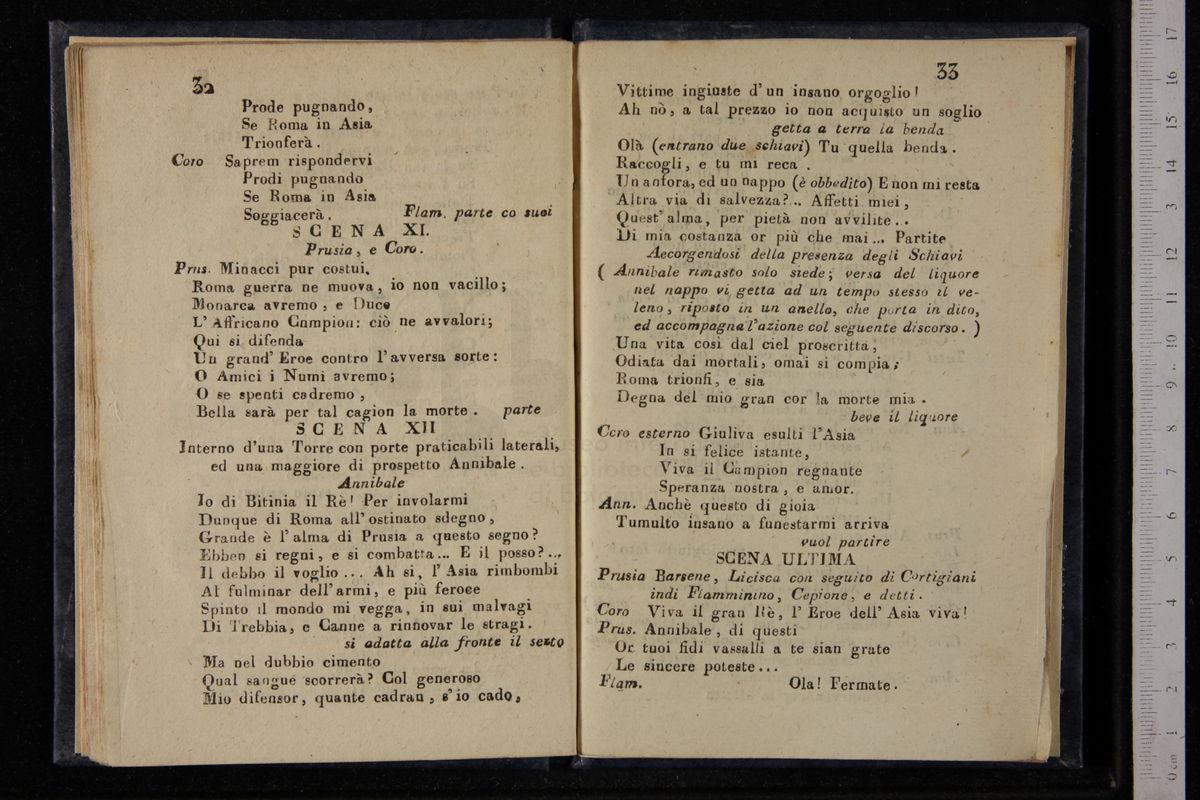 32
Prode pugnando,
Se Roma in Asia
Trionferà.
Coro Saprem rispondervi
Prodi pugnando
Se Roma in Asia
Soggiacerà. Flam. parte co suoi
SCENA XI.
Prusia, e Coro.
Prus. Minacci pur costui,
Roma guerra ne muova, io non vacillo;
Monarca avremo, e Duce
L' Affricano Campion: ciò ne avvalori;
Qui si difenda
Un grand' Eroe contro l'avversa sorte:
O Amici i Numi avremo;
O se spenti cadremo,
Bella sarà per tal cagion la morte. parte
SCENA XII
Interno d'una Torre con porte praticabili laterali,
ed una maggiore di prospetto Annibale.
Annibale
Io di Bitinia il Rè! Per involarmi
Dunque di Roma all'ostinato sdegno,
Grande è l'alma di Prusia a questo segno?
Ebben si regni, e si combatta... E il posso?...
Il debbo il voglio... Ah si, l'Asia rimbombi
Al fulminar dell'armi, e più feroce
Spinto il mondo mi vegga, in sui malvagi
Di Trebbia, e Canne a rinnovar le stragi.
si adatta alla fronte il serto
Ma nel dubbio cimento
Qual sangue scorrerà? Col generoso
Mio difensor, quante cadran, s'io cado,
33
Vittime ingiuste d'un insano orgoglio!
Ah nò, a tal prezzo io non acquisto un soglio
getta a terra la benda
Olà (entrano due schiavi) Tu quella benda.
Raccogli, e tu mi reca.
Un anfora, ed un nappo (è obbedito) E non mi resta
Altra via di salvezza?.. Affetti miei,
Quest'alma, per pietà non avvilite..
Di mia costanza or più che mai... Partite
Aecorgendosi della presenza degli Schiavi
( Annibale rimasto solo siede; versa del liquore
nel nappo vi getta ad un tempo stesso il ve-
leno, riposto in un anello, che porta in dito,
ed accompagna l'azione col seguente discorso. )
Una vita così dal ciel proscritta,
Odiata dai mortali, omai si compia;
Roma trionfi, e sia
Degna del mio gran cor la morte mia.
beve il liquore
Coro esterno Giuliva esulti l'Asia
In si felice istante,
Viva il Campion regnante
Speranza nostra, e amor.
Ann. Anchè questo di gioia
Tumulto insano a funestarmi arriva
vuol partire
SCENA ULTIMA
Prusia Barsene, Licisca con seguito di Cortigiani
indi Flamminino, Cepione, e detti.
Coro Viva il gran Rè, l'Eroe dell'Asia viva!
Prus. Annibale, di questi
Or tuoi fidi vassalli a te sian grate
Le sincere poteste...
Flam. Ola! Fermate.
0 cm 1 2 3 4 5 6 7 8 9 10 11 12 13 14 15 16 17